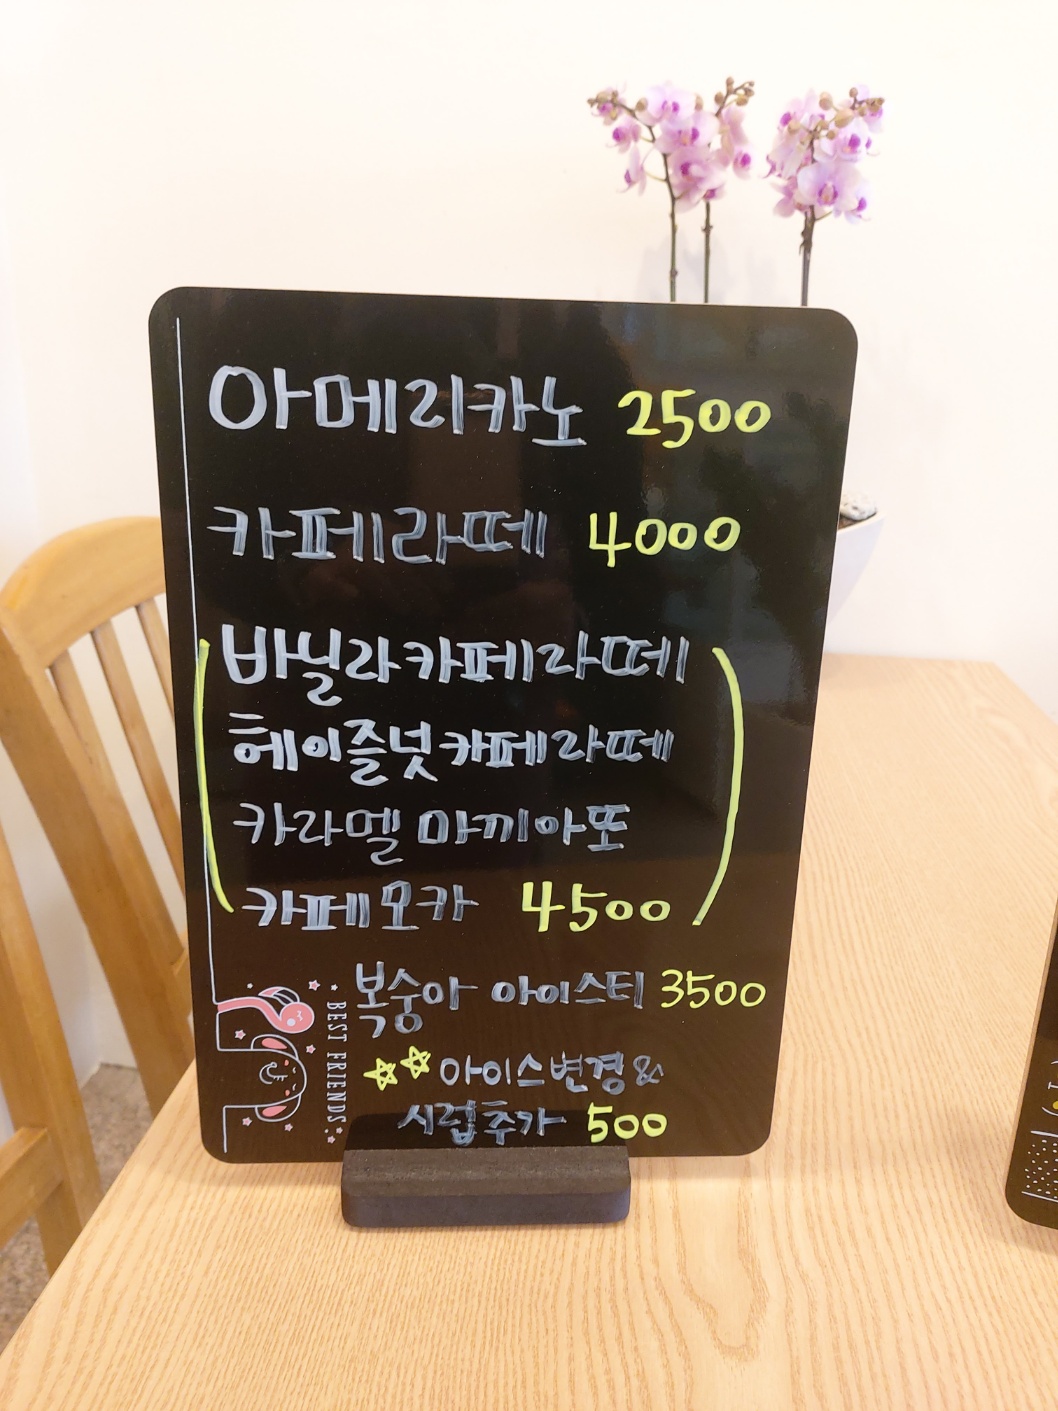 아메리카노 2500
카페라떼 4000
바닐라카페라떼
헤이즐넛카페라떼
카라멜 마끼아또
카페모카 4500
복숭아 아이스티 3500
아이스변경&
시럽추가 500
BEST FRIENDS